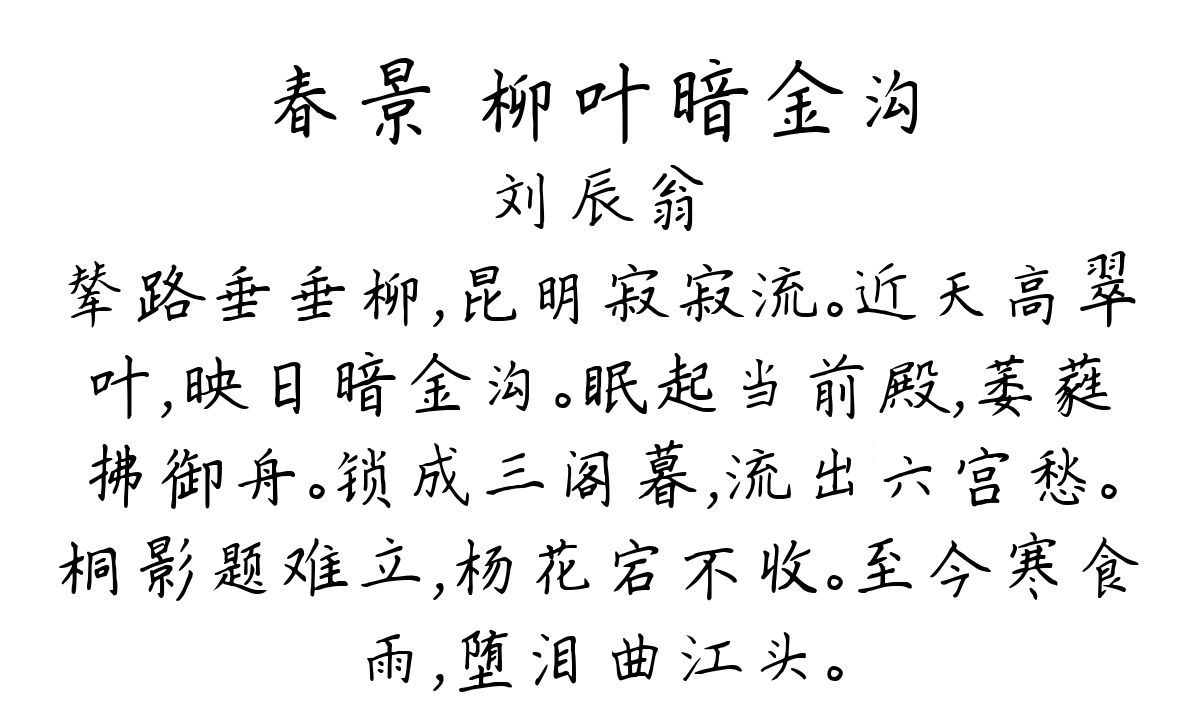 春景 柳叶暗金沟
刘辰翁
辇路垂垂柳,昆明寂寂流。近天高翠
叶,映日暗金沟。眠起当前殿,萎蕤
拂御舟。锁成三阁暮,流出六宫愁。
桐影题难立,杨花宕不收。至今寒食
雨,堕泪曲江头。